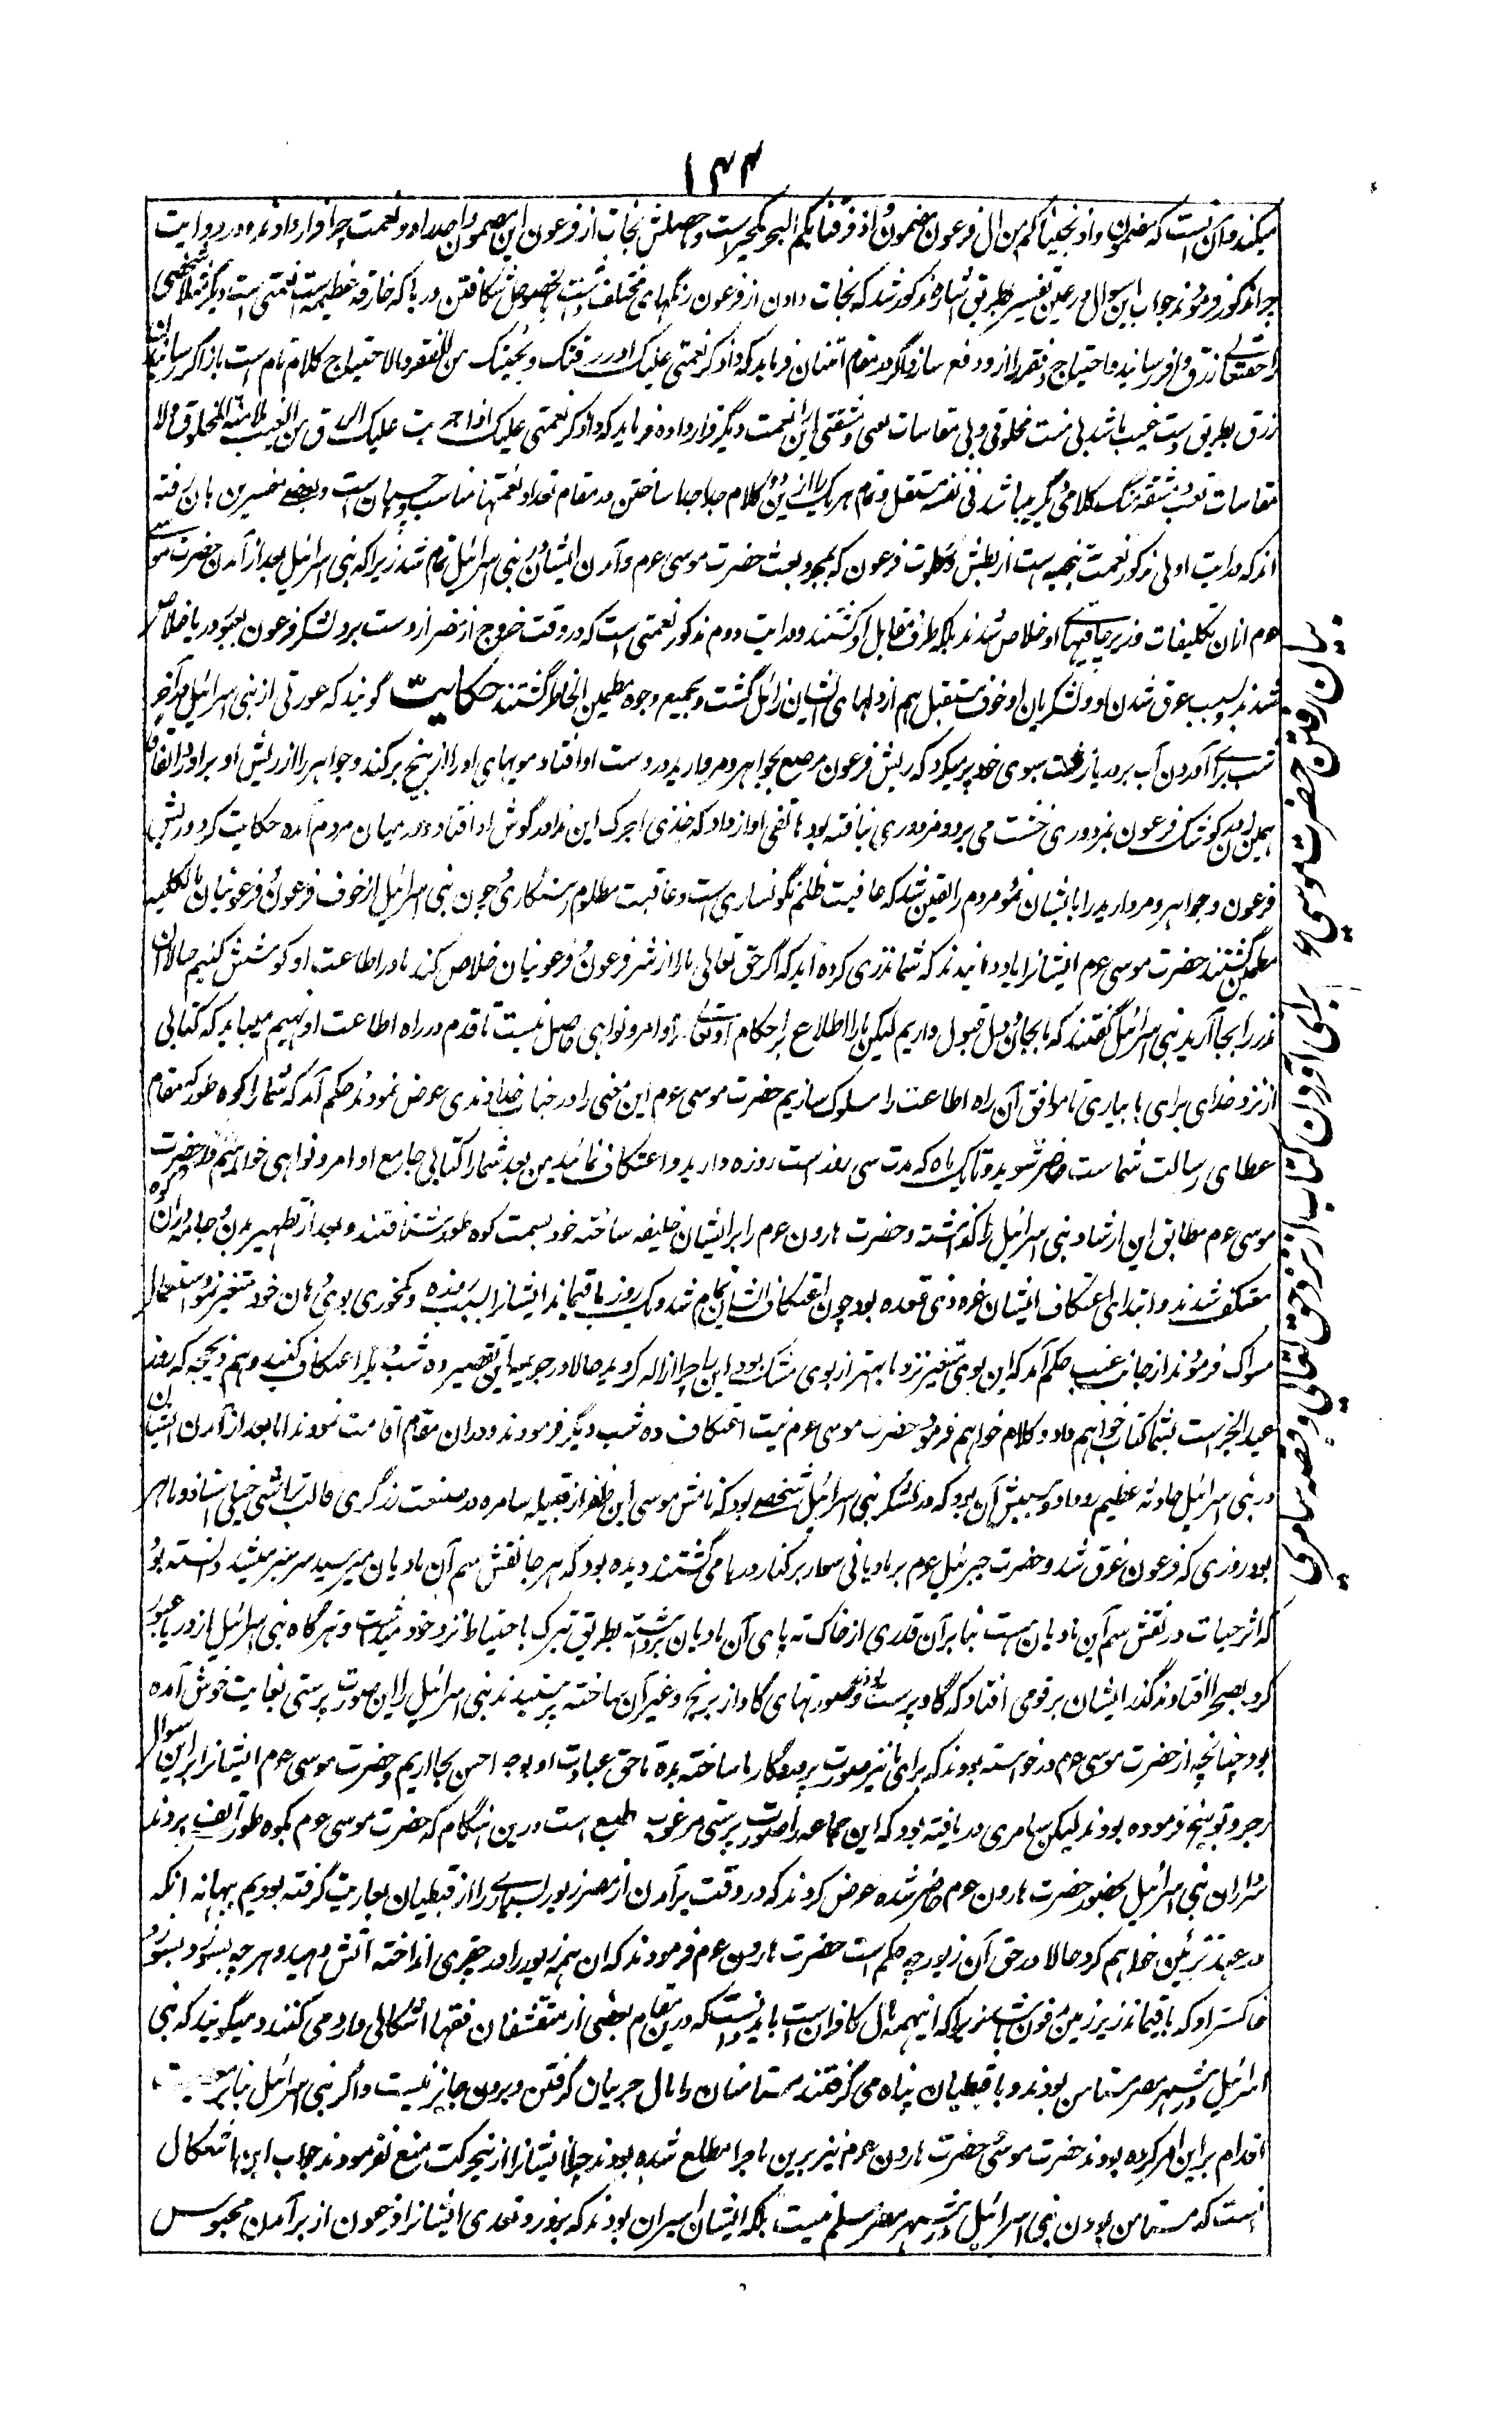 ۱۴۴
میکنند و آن اینست که مضمون واذ نجیناکم من آل فرعون و مضمون اذ فرقنا بکم البحر یکچیز است و حاصلش نجات از فرعون این مضمون واحد را دو نعمت چرا قرار دادند و در دو آیت
چرا مذکور فرمودند جواب این سوال در عین تفسیر بطریق اشاره مذکور شد که نجات دادن از فرعون رنگهای مختلف داشت بالخصوص شگافتن دریا که خارقه عظیمه است نعمتی است دیگر مثلا شخصی
را حقتعالی رزق وافر رسانید و احتیاج و فقر را ازو دفع سازد اگر در مقام امتنان فرماید که واذکر نعمتی علیک اذ رزقتک و نجیتک من الفقر و الاحتیاج کلام تام است باز اگر رسانیدن
رزق بطریق دست غیب باشد بی منت مخلوقی و بی مقاسات سعی و مشقتی این را نعمت دیگر قرار داده فرماید که واذکر نعمتی علیک اذ اجریت علیک الرزق من الغیب بلا منة المخلوق و لا
مقاسات تعب و مشقة رنگ کلامی دیگر پیدا شد فی نفسه مستقل و تام هر یک را ازین دو کلام جدا جدا ساختن در مقام تعداد نعمتها مناسب و چسپان است و بعضی مفسرین بآن رفته
اند که در آیت اولی مذکور نعمت تنجیه است از بطش و سطوت فرعون که بمجرد بعثت حضرت موسی عوم و آمدن ایشان در بنی اسرائیل تمام شد زیرا که بنی اسرائیل بعد از آمدن حضرت موسی
عوم ازان تکلیفات و زیر چاقیهای او خلاص شدند بلکه طرف مقابل او گشتند و در آیت دوم مذکور نعمتی است که در وقت خروج از مصر از دست برد لشکر فرعون بعبور دریا خلاص
شدند و بسبب غرق شدن او و لشکریان او خوف مستقبل هم از دلهای ایشان زائل گشت و بجمیع وجوه مطمئن الخاطر گشتند حکایت گویند که عورتی از بنی اسرائیل در آخر
شب برای آوردن آب بر دریا رفت سبوی خود پر میکرد که ریش فرعون مرصع بجواهر و مروارید در دست او افتاد مویهای او را از بیخ برکند و جواهر را از ریش او برآورد اتفاقا
همین زن در کوشک فرعون بمزدوری خشت می برد و مزدوری نیافته بود هاتفی آواز داد که خذی اجرک این ندا در گوش او افتاد و در میان مردم آمده حکایت کرد و ریش
فرعون و جواهر و مروارید را بایشان نمود مردم را یقین شد که عاقبت ظلم نگونساری است و عاقبت مظلوم رستگاری چون بنی اسرائیل از خوف فرعون و فرعونیان بالکلیه
مطمئن گشتند حضرت موسی عوم ایشانرا یاد دهانیدند که شما نذری کرده اید که اگر حق تعالی ما را از شر فرعون و فرعونیان خلاص کند ما در اطاعت او کوشش کنیم حالا آن
نذر را بجا آرید بنی اسرائیل گفتند که ما بجان و دل قبول داریم لیکن ما را اطلاع بر احکام او تعالی و اوامر و نواهی حاصل نیست تا قدم در راه اطاعت او نهیم میباید که کتابی
از نزد خدای برای ما بیاری تا موافق آن راه اطاعت را مسلوک سازیم حضرت موسی عوم این معنی را در جناب خداوندی عرض نمودند حکم آمد که شما را کوه طور که مقام
عطای رسالت شماست حاضر شوید و تا یک ماه که مدت سی روز است روزه دارید و اعتکاف نمائید من بعد شما را کتابی جامع اوامر و نواهی خواهم داد حضرت
موسی عوم مطابق این ارشاد بنی اسرائیل را گذاشته و حضرت هارون عوم را بر ایشان خلیفه ساخته خود بسمت کوه طور شتافتند و بعد از تطهیر بدن و جامه در آن کوه
معتکف شدند و ابتدای اعتکاف ایشان غره ذی قعده بود چون اعتکاف ایشان تمام شد و یک روز باقیماند ایشانرا بسبب روزه و کمخوری بوی دهان خود متغیر نمود استعمال
مسواک فرمودند از جانب غیب حکم آمد که این بوی متغیر نزد ما بهتر از بوی مشک بود این را چرا ازاله کردید حالا در جریمه این تقصیر ده شب دیگر اعتکاف کنید و دهم ذیحجه که روز
عید النحر است بشما کتاب خواهم داد و کلام خواهم فرمود حضرت موسی عوم نیت اعتکاف ده شب دیگر فرمودند و در آن مقام اقامت نمودند اما بعد از آمدن ایشان
در بنی اسرائیل حادثه عظیم رو داد و سببش آن بود که در لشکر بنی اسرائیل شخصی بود که نامش موسی ابن ظفر از قبیله سامره در صنعت زرگری و قالب تراشی خیلی استاد و ماهر
بود روزی که فرعون غرق شد و حضرت جبرئیل عوم بر مادیانی سوار بر کنار دریا می گشتند دیده بود که هر جا نقش سم آن مادیان میرسید سرسبز میشد دانسته بود
که اثر حیات در نقش سم این مادیان هست بنا بر آن قدری از خاک ته پای آن مادیان برداشته بطریق تبرک باحتیاط نزد خود میداشت و هرگاه بنی اسرائیل از دریا عبور
کرد بصحرا افتادند گذر ایشان بر قومی افتاد که گاو پرست بودند و صورتهای گاو از برنج و غیر آن ساخته می پرستیدند بنی اسرائیل را این صورت پرستی بغایت خوش آمده
بود چنانچه از حضرت موسی عوم درخواسته بودند که برای ما نیز صورت پروردگار ما ساخته بده تا حق عبادت او بوجه احسن بجا آریم و حضرت موسی عوم ایشانرا بر این سوال
زجر و توبیخ فرموده بودند لیکن سامری دریافته بود که این جماعه را صورت پرستی مرغوب طبع است درین هنگام که حضرت موسی عوم بکوه طور تشریف بردند
سرداران بنی اسرائیل بحضور حضرت هارون عوم حاضر شده عرض کردند که در وقت برآمدن از مصر زیور بسیاری را از قبطیان بعاریت گرفته بودیم ببهانه آنکه
در عید تزئین خواهیم کرد حالا در حق آن زیور چه حکم است حضرت هارون عوم فرمودند که آن همه زیور را در حفری انداخته آتش دهید و هر چه بسوزد بسوزد
خاکستر او که باقیماند زیر زمین مدفون شد زیرا که اینهمه مال کافران است باید دانست که درین مقام بعضی از متقشفان فقها اشکالی وارد می کنند و میگویند که بنی
اسرائیل در شهر مصر مستامن بودند و با قبطیان پناه می گرفتند مستامنان را مال حربیان گرفتن و بردن جائز نیست و اگر بنی اسرائیل بنا بر معصیت
اقدام بر این امر کرده بودند حضرت موسی و حضرت هارون عوم نیز برین ماجرا مطلع شده بودند چرا ایشانرا ازین حرکت منع نفرمودند جواب این اشکال
اینست که مستامن بودن بنی اسرائیل در شهر مصر مسلم نیست بلکه ایشان اسیران بودند که بزور و تعدی ایشانرا فرعون از برآمدن محبوس
بیان رفتن حضرت موسی ع برای آوردن کتاب از نزد حق تعالی و قصه سامری